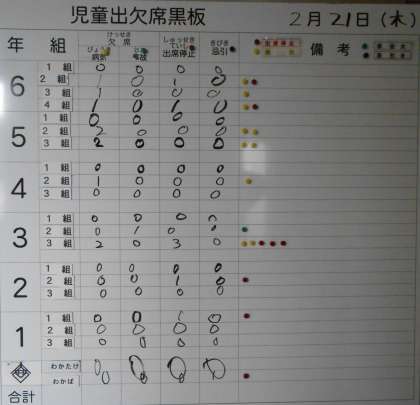 児童出欠席黒板 2月21日(木)
年 組 けっせき 欠席 びょうき 病気 じこ 事故 しゅっせきていし 出席停止 きびき 忌引 備考
6 1組 0 0 0 0
2組 0 1 0
3組 1 0 0 0
4組 1 0 1 0
5 1組 0 0 0 0
2組 2 0 0 0
3組 2 0 0 0
4 1組 0 0 0 0
2組 1 0 0 0
3組 0 0 0 0
3 1組 0 0 0 0
2組 0 1 0 0
3組 2 0 3 0
2 1組 0 0 0 0
2組 0 0 1 0
3組 0 0 0 0
1 1組 0 0 1 0
2組 0 0 0 0
3組 0 0 0 0
わかたけ 0 0 0 0
わかば 0 0 0
合計